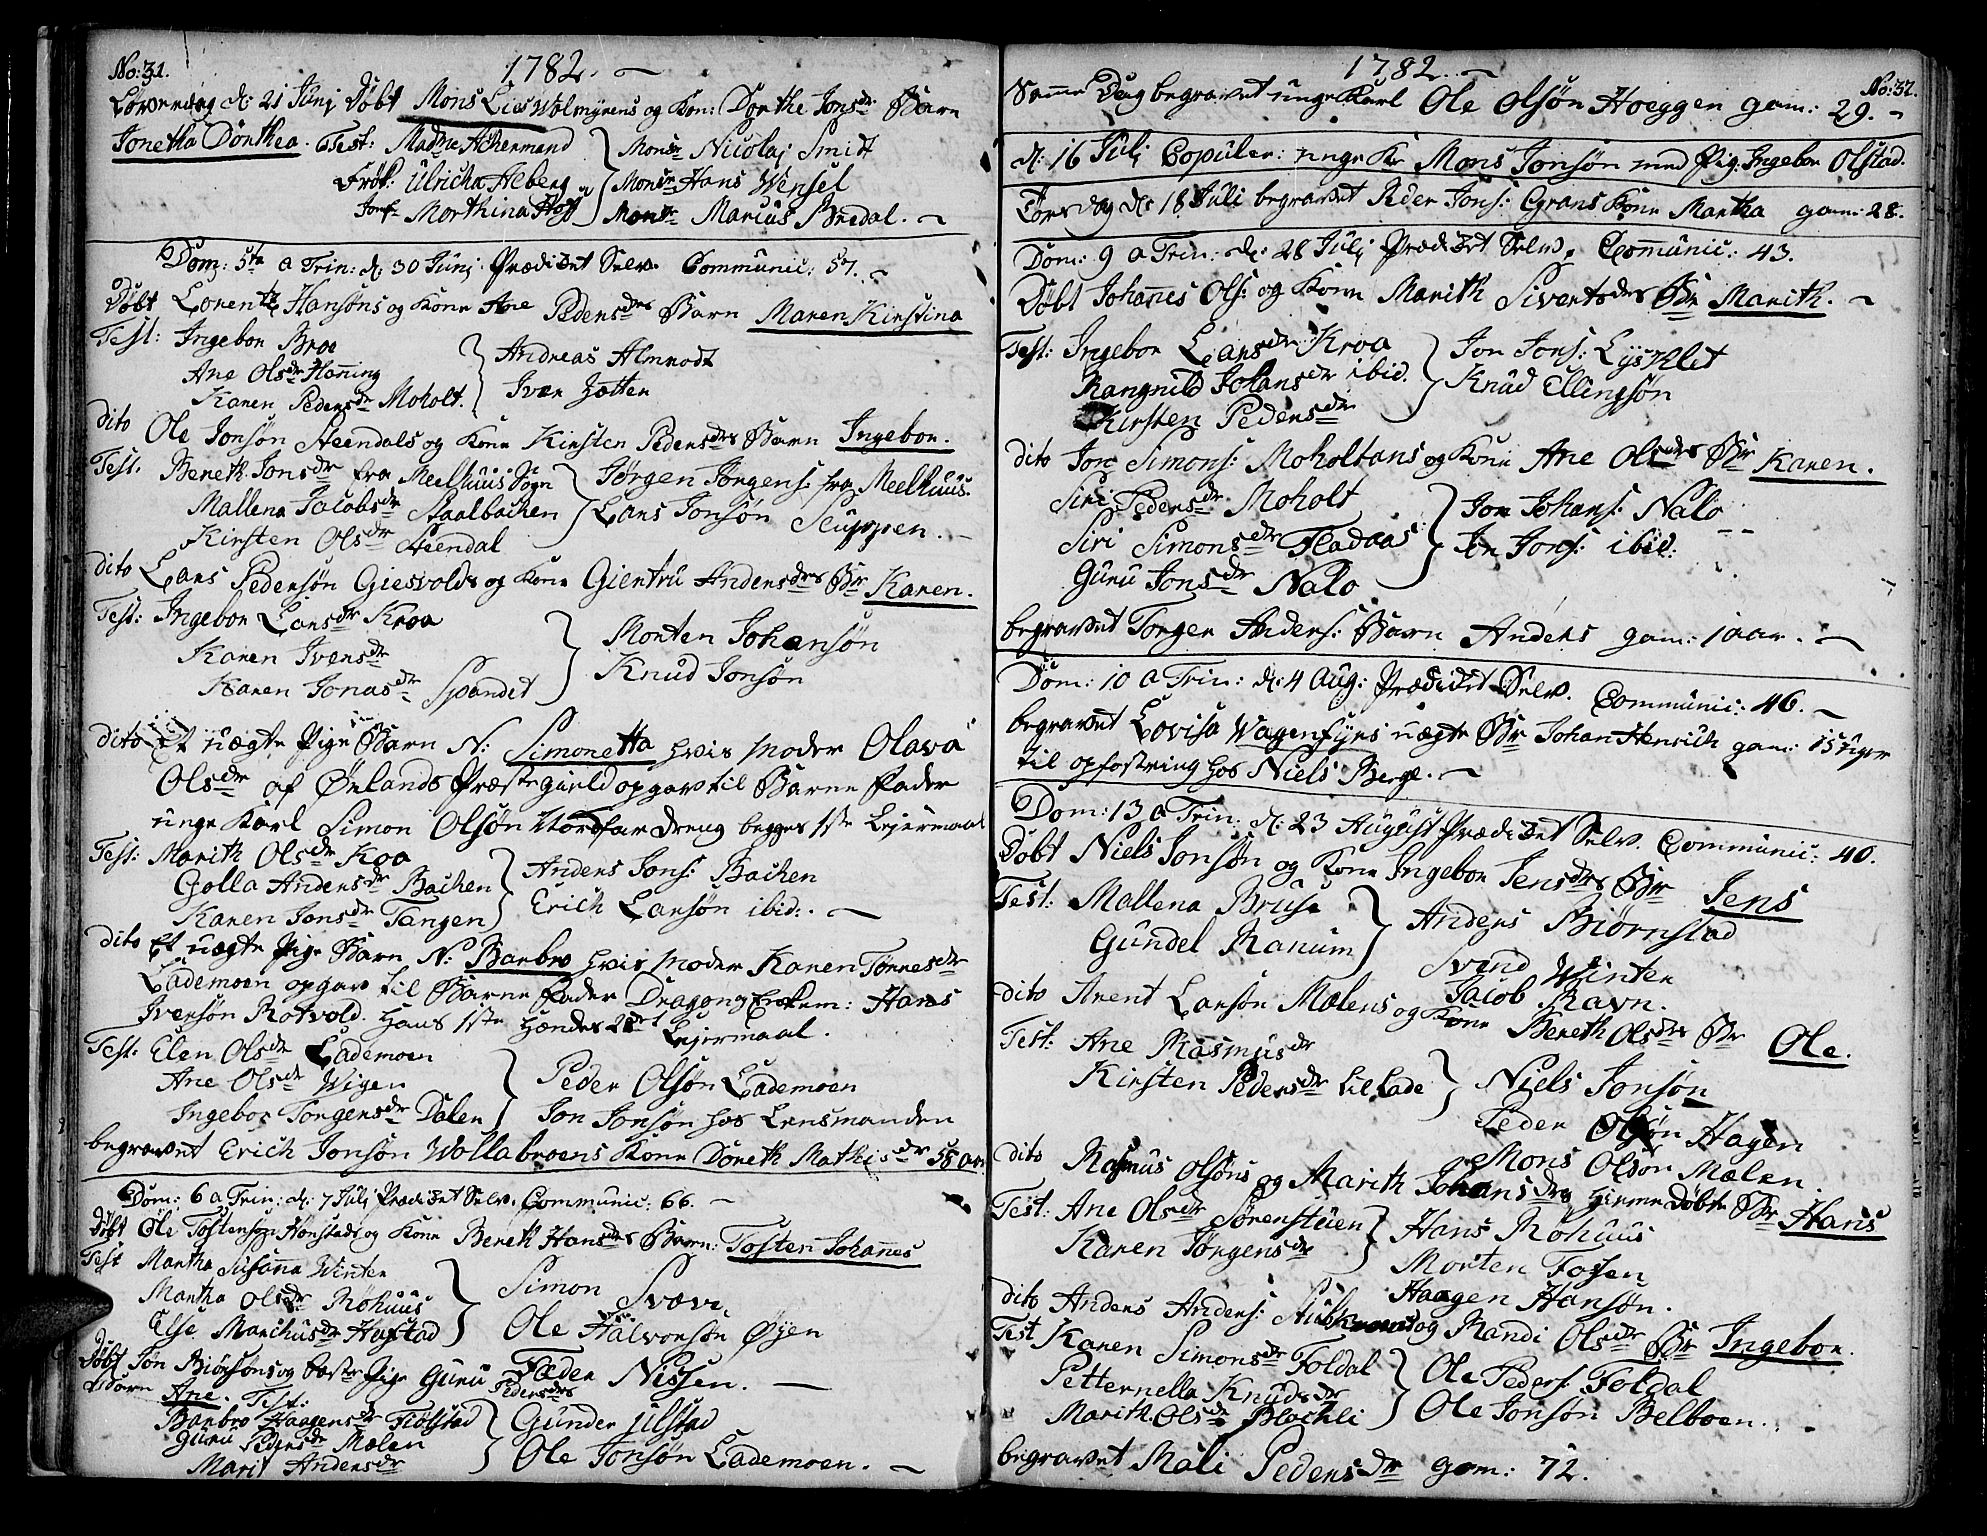 No: 31.
1782.
Løverdag d: 21 Junj Døbt Mons Lies Wolmyrens og Kon: Dorthe Jonsdr Barn
Jonetha Dorthea. Test: Madme Achermand
Frök: Ulricha Heberg
Jomf: Morthina Hoff
Monsr Nicolaj Smidt
Monsr Hans Wensel
Monsr Marcus Bredal.
Dom: 5te a Trin: d: 30 Junj Prædiket Selv. Communic: 57.
Døbt Lorentz Hansøns og Kone Ane Pedersdrs Barn Maren Kirstina
Test: Ingebor Broe
Ane Olsdr Hoñing
Karen Pedersdr Moholt.
Andreas Almrodt
Iver Zotter
dito Ole Jonsøn Steendals og Kone Kirsten Pedersdrs Barn Ingebor.
Test. Bereth Jonsdr fra Meelhuus Sogn
Mallena Jacobsdr Staalbachen
Kirsten Olsdr Steendal
Jørgen Jørgens: fra Meelhuus.
Lars Jonsøn Sluppen.
dito Lars Pedersøn Giesvolds og Kone Giertru Andersdrs Br Karen.
Test: Ingebor Larsdr Kroa
Karen Iversdr
Karen Jonasdr Spandet
Morten Johansøn
Knud Jonsøn
dito Et uægte Pige Barn N: Simonetta hvis Moder Olava
Olsdr af Ørlands Præstegield opgav til Barne Fader
unge Karl Simon Olsøn Nordfar dreng begges 1ste Leiermaal
Test: Marith Olsdr Koa
Golla Andersdr Bachen
Karen Jonsdr Tangen
Anders Jons: Bachen
Erich Larsøn ibid:.
dito Et uægte Pige Barn N: Barbro hvis Moder Karen Tørresdr
Lademoen opgav til Barne Fader Dragon Hans
Iversøn Rotvold. Hans 1ste Hendes 2det Leiermaal.
Test: Elen Olsdr Lademoen
Ane Olsdr Wigen
Ingebor Torgersdr Dalen
Peder Olsøn Lademoen
Jon Jonsøn hos Lensmanden
begravet Erich Jonsøn Wollabroens Kone Doreth Mathisdr 58 aar
Dom: 6 a Trin: d: 7 Julj Prædiket Selv. Communic: 66.
Døbt Ole Tostensøn Hønstads og Kone Bereth Hansdrs Barn: Tosten Johañes
Test Martha Susaña Winter
Martha Olsdr Rohuus
Else Marchusdr Hafstad
Simon Svæve
Ole Halvorsøn Øyen
Peder Nissen.
Døbt Jon Biørsøns og Fæste Pige Guru Pedersdrs
Barn Ane. Test:
Barbro Haagensdr Fiølstad
Guru Pedersdr Mælen
Marit Andersdr
Gunder Ulstad
Ole Jonsøn Lademoen.
1782.
No: 32.
Samme Dag begravet unge Karl Ole Olsøn Hoeggen gam: 29.
d: 16 Julj Copuler: unge Kr Mons Jonsøn med Pig. Ingebor Olstad.
Torsdag d: 18 Juli begravet Peder Jons: Grans Kone Martha gam: 28.
Dom: 9 a Trin: d: 28 Julj Prædiket Selv. Comunic: 43.
Døbt Johañes Ols: og Kone Marith Sivertsdrs Br Marith.
Test: Ingebor Larsdr Kroa
Rangnild Johansdr ibid.
Kirsten Pedersdr
Jon Jons: Lysklet
Knud Ellingsøn
dito Jon Simons: Moholtans og Kone Ane Olsdrs Br Karen.
Siri Pedersdr Moholt
Siri Simonsdr Fladaas
Guru Jonsdr Nalo
Jon Johans: Nalo
Jon Jons: ibid:
begravet Torger Anders: Barn Anders gam: 1 aar.
Dom: 10 a Trin: d: 4 Aug: Prædiket Selv. Communic: 46.
begravet Lovisa Wagenfyrs uægte Br Johan Henrich gam: 15 Uger
til opfostring hos Niels Berge.
Dom: 13 a Trin: d: 23 August Prædiket Selv. Communic: 40.
Døbt Niels Jonsøn og Kone Ingebor Jensdrs Br Jens
Test. Mallena Bruse
Gundel Ranum
Anders Biørnstad
Svend Winter
Jacob Ravn.
dito Arent Larsøn Mælens og Kone Bereth Olsdrs Br Ole.
Test: Ane Rasmusdr
Kirsten Pedersdr Lil Lade
Niels Jonsøn
Peder Olsøn Hagen
Mons Olsøn Mælen.
dito Rasmus Olsøns og Marith Johansdrs hieme Døbte Br Hans
Test: Ane Olsdr Sørenstuen
Karen Jørgensdr
Hans Rohuus
Morten Fossen
Haagen Hansøn.
dito Anders Anders: og Randi Olsdr Br Ingebor.
Test Karen Simonsdr Foldal
Petternella Knudsdr
Marith Olsdr Blochli
Ole Peders: Foldal
Ole Jonsøn Belboen.
begravet Mali Pedersdr gam: 72.